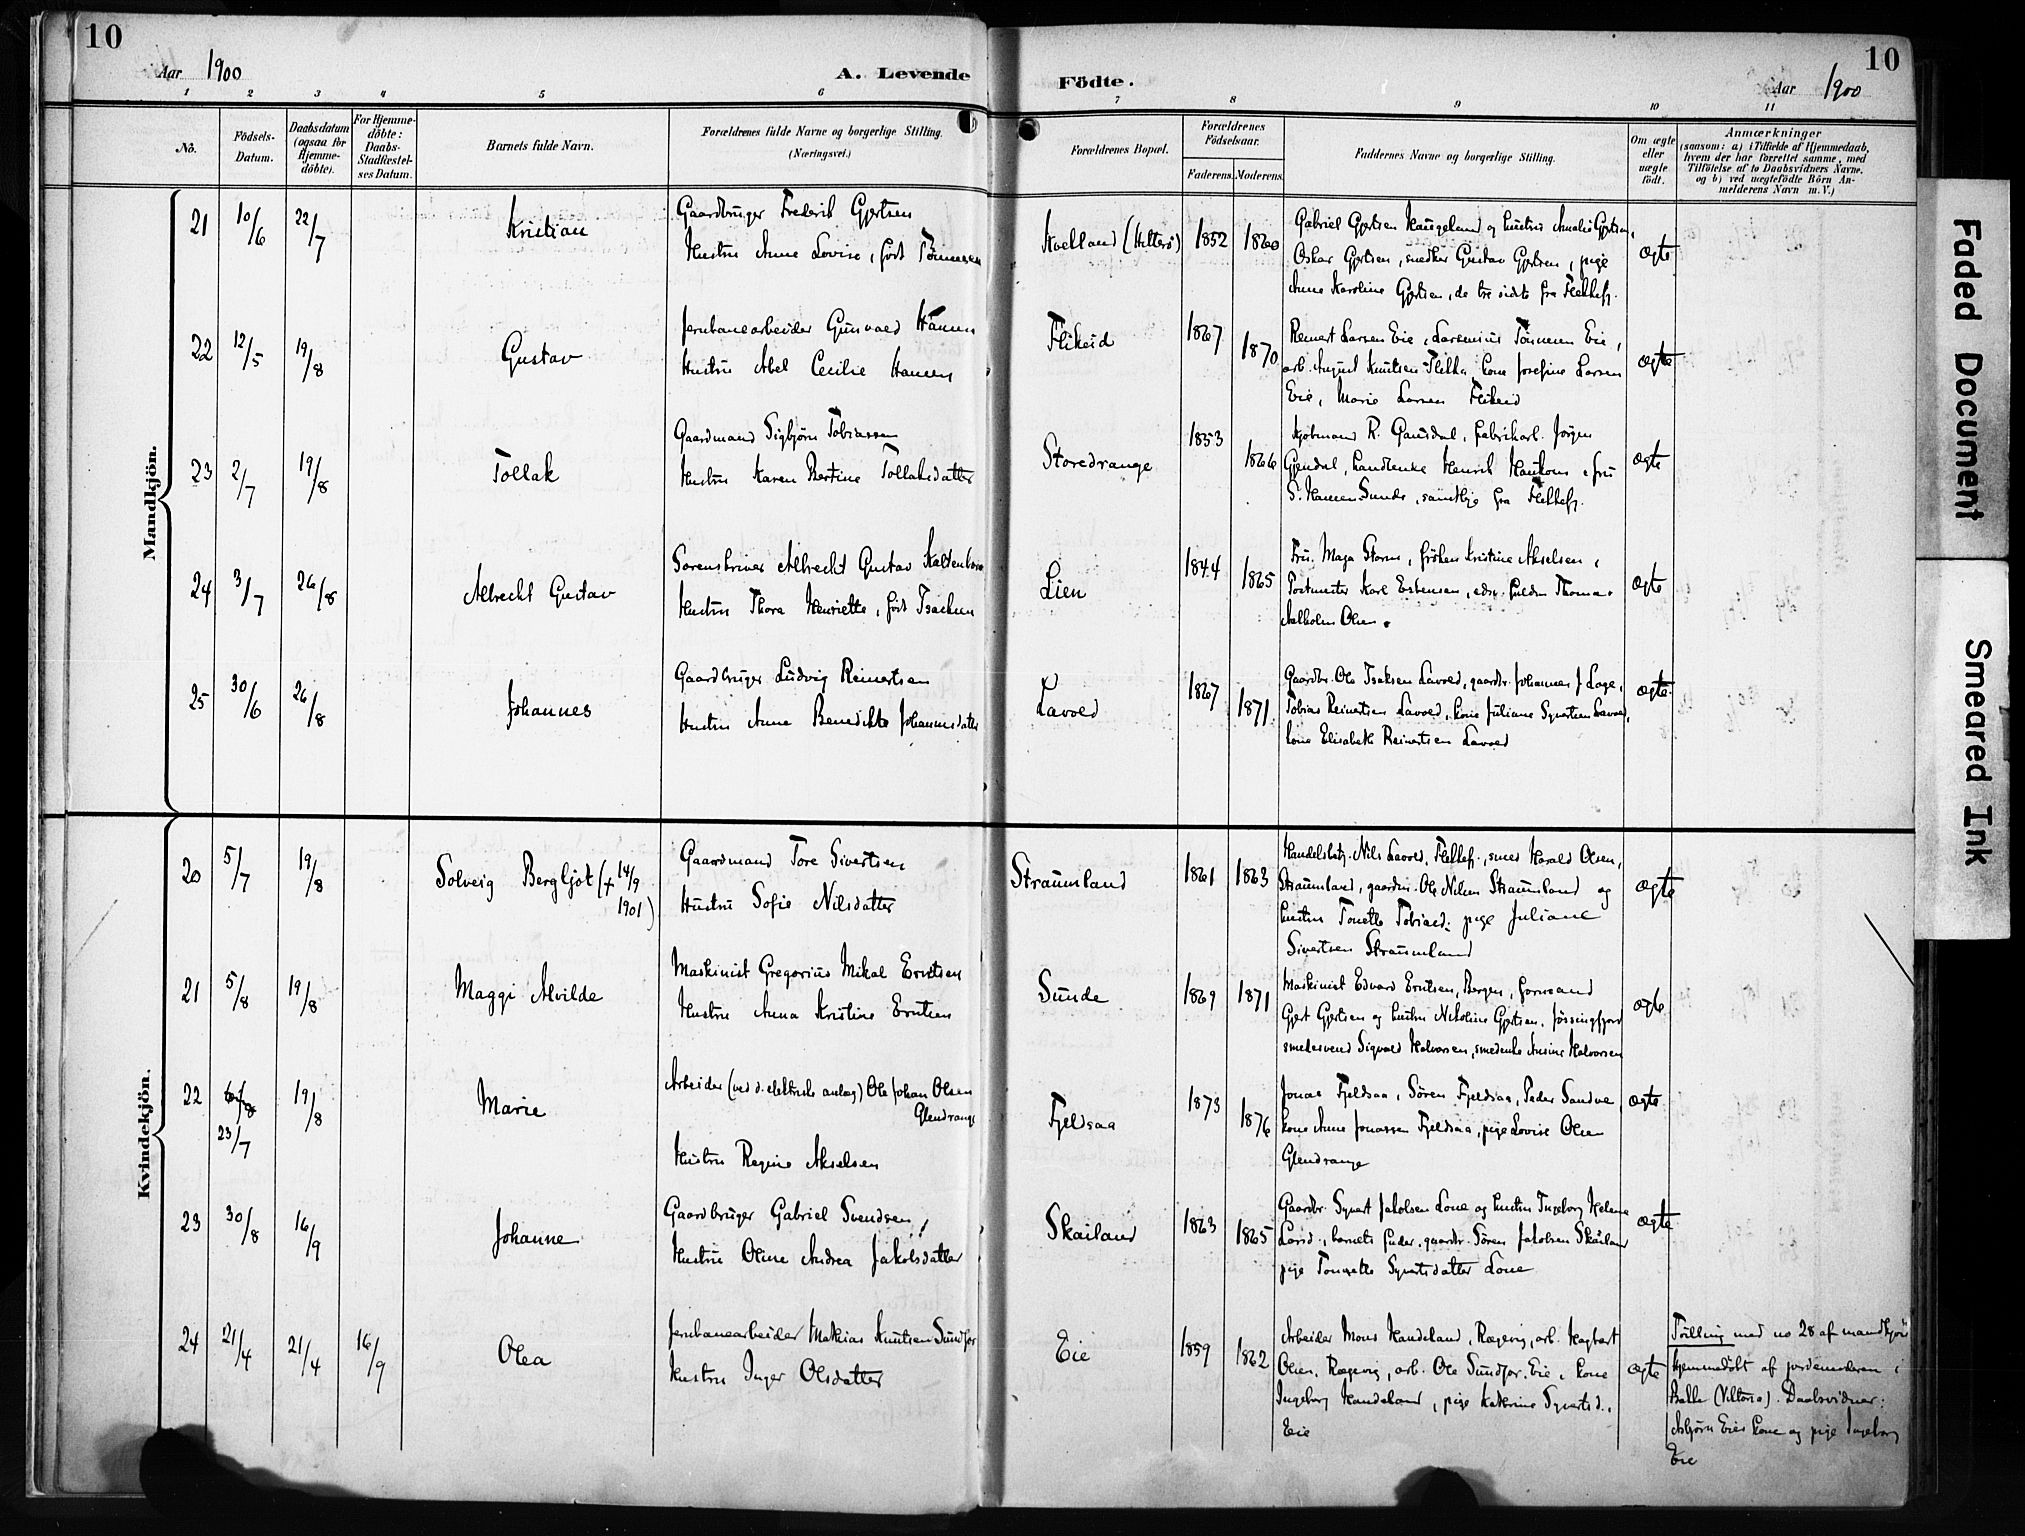 10
Aar 1900
A. Levende
Födte.
Aar 1900
10
1 2 3 4 5 6 7 8 9 10 11
No.
Födsels-
Datum.
Daabsdatum
(ogsaa for
Hjemme-
döbte).
For Hjemme-
döbte:
Daabs-
Stadfæstel-
ses Datum.
Barnets fulde Navn.
Forældrenes fulde Navne og borgerlige Stilling.
(Næringsvei.)
Forældrenes Bopæl.
Forældrenes
Födselsaar.
Faderens. Moderens.
Faddernes Navne og borgerlige Stilling.
Om ægte
eller
uægte
födt.
Anmærkninger
(saasom: a) i Tilfælde af Hjemmedaab,
hvem der har forrettet samme, med
Tilföielse af to Daabsvidners Navne.
og b) ved uægtefödte Börn An-
melderens Navn m. V.)
Mandkjön.
21 10/6 22/7 Kristian
Gaardbruger Frederik Gjertsen
Hustru Anne Lovise, födt Tönnesen
Kvelland (Hitterö) 1852 1860
Gabriel Gjertsen Haugeland og hustru Amalie Gjertsen,
Oskar Gjertsen, snedker Gustav Gjertsen, pige
Anne Karoline Gjertsen, de tre sidste fra Flekkefj.
ægte
22 12/5 19/8 Gustav
Jernbanearbeider Gunvald Hansen
Hustru Abel Cecilie Hansen
Flikeid 1867 1870
Reinert Larsen Eie, Larsenius Tönnesen Eie,
arb. August Knutsen Flikka, kone Josefine Larsen
Eie, Marie Larsen Flikeid
ægte
23 2/7 19/8 Tollak
Gaardmand Sigbjörn Tobiassen
Hustru Karen Bertine Tollaksdatter
Storedrange 1853 1866
Kjöbmand R. Gausdal, fabrikarb. Jörgen
Gjendal, Henrik, fru
S. Hansen Sunde, samtlige fra Flekkefj.
ægte
24 3/7 26/8 Albrecht Gustav
Sorenskriver Albrecht Gustav Kaltenborn
Hustru Thora Henriette, födt Isachsen
Lien 1844 1865
Fru Maga Storm, fröken Kristine Akselsen,
Postmester Karl Esbensen, Thomas
Aalholm Olsen.
ægte
25 30/6 26/8 Johannes
Gaardbruger Ludvig Reinertsen
Hustru Anne Benedikte Johannesdatter
Lavold 1867 1871
Gaardbr. Ole Isaksen Lavold, gaardbr. Johannes J. Loge,
Tobias Reinertsen Lavold, kone Juliane Syvertsen Lavold,
kone Elisabeth Reinertsen Lavold
ægte
Kvindekjön.
20 5/7 19/8 Solveig Bergljot (+ 14/9
1901)
Gaardmand Tore Sivertsen
Hustru Sofie Nilsdatter
Straumland 1861 1863
Handelsbetj. Nils Lavold, Flekkefj., smed Harald Olsen,
Straumland, gaardm. Ole Nilsen Straumland og
hustru Tonette Tobiasd: pige Juliane
Sivertsen Straumland
ægte
21 5/8 19/8 Maggi Alvilde
Maskinist Gregorius Mikal Erntsen
Hustru Anna Kristine Erntsen
Sunde 1869 1871
Maskinist Edvard Erntsen, Bergen, formand
Gjert Gjertsen og hustru Nikoline Gjertsen, Jössingfjord
smedesvend Sigvald Halvorsen, smedenke Ansine Halvorsen
ægte
22 23/7 19/8 Marie
Arbeider (ved d. elektriske anlæg) Ole Johan Olsen
Glendrange
Hustru Regine Akselsen
Fjeldsaa 1873 1876
Jonas Fjeldsaa, Sören Fjeldsaa, Peder Sandve,
kone Anne Jonassen Fjeldsaa, pige Lovise Olsen
Glendrange
ægte
23 30/8 16/9 Johanne
Gaardbruger Gabriel Svendsen,
Hustru Oline Andrea Jakobsdatter
Skailand 1863 1865
Gaardbr. Syvert Jakobsen Lone og hustru Ingeborg Helene
Larsd., barnets fader, gaardbr. Sören Jakobsen Skailand
pige Tonnette Syvertsdatter Lone
ægte
24 21/4 21/4 16/9 Olea
Jernbanearbeider Mathias Knutsen Sundfor
Hustru Inger Olsdatter
Eie 1859 1862
Arbeider Mons Handeland, Rægevig, arb. Hagbart
Olsen, Rægevig, arb. Ole Sundfor, Eie, kone
Ingeborg Handeland, pige Katrine Syvertsd.,
Eie
ægte
Tvilling med no 28 af mandkjön
Hjemmedöbt af jordemoderen i
Bakke (Viktoria). Daabsvidner:
Asbjörn Eies kone og pige Ingeborg
Eie
Faded Document
Smeared Ink